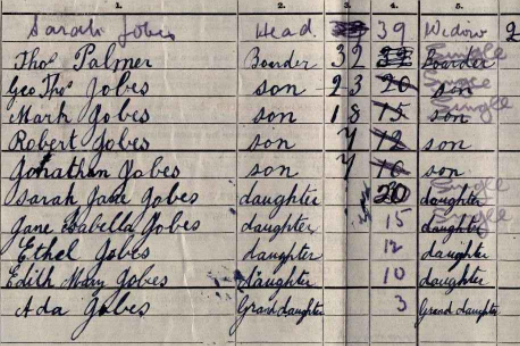 1. 2. 3. 4. 5.
Sarah Jobes Head 39 Widow 2
Thos Palmer Boarder 32 32 Boarder Single
Geo Thos Jobes son 23 20 son Single
Mark Jobes son 18 15 son Single
Robert Jobes son 7 12 son
Jonathan Jobes son 7 10 son
Sarah Jane Jobes daughter 20 daughter Single
Jane Isabella Jobes daughter 15 daughter Single
Ethel Jobes daughter 12 daughter
Edith Mary Jobes daughter 10 daughter
Ada Jobes Grand daughter 3 Grand daughter